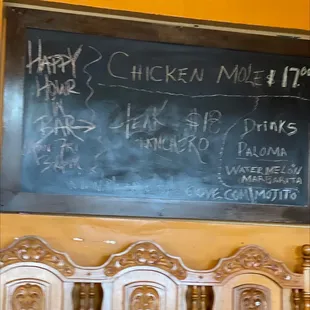 HAPPY
HOUR
IN
BAR
CHICKEN MOLE $17.00
$18
RANCHERO
Drinks
PALOMA
WATERMELON
MARGARITA
MOJITO